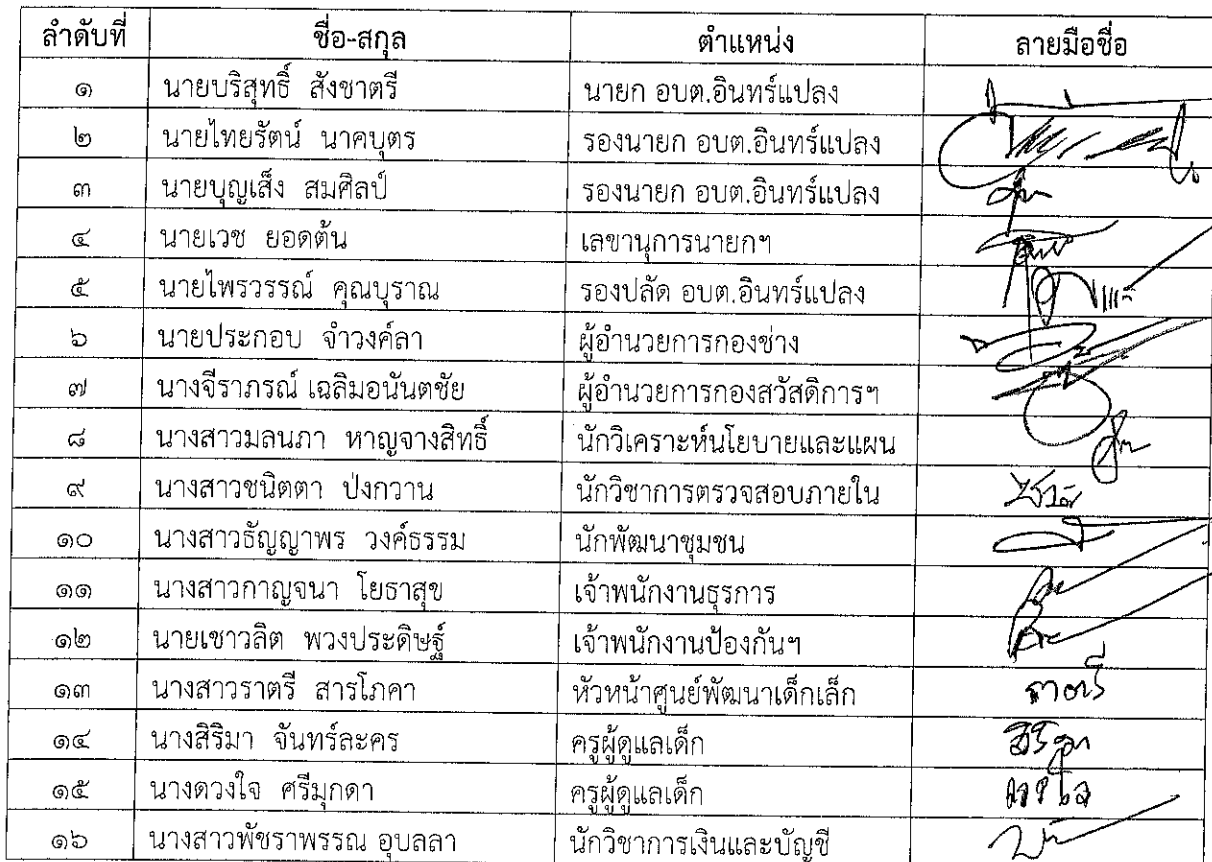 ลำดับที่ ชื่อ-สกุล ตำแหน่ง ลายมือชื่อ
๑ นายบริสุทธิ์ สังชาตรี นายก อบต.อินทร์แปลง
๒ นายไทยรัตน์ นาคบุตร รองนายก อบต.อินทร์แปลง
๓ นายบุญเส็ง สมศิลป์ รองนายก อบต.อินทร์แปลง
๔ นายเวช ยอดต้น เลขานุการนายกฯ
๕ นายไพรวรรณ์ คุณบุราณ รองปลัด อบต.อินทร์แปลง
๖ นายประกอบ จำวงค์ลา ผู้อำนวยการกองช่าง
๗ นางจีราภรณ์ เฉลิมอนันตชัย ผู้อำนวยการกองสวัสดิการฯ
๘ นางสาวมลนภา หาญจางสิทธิ์ นักวิเคราะห์นโยบายและแผน
๙ นางสาวชนิตตา ป่งกวาน นักวิชาการตรวจสอบภายใน
๑๐ นางสาวธัญญาพร วงค์ธรรม นักพัฒนาชุมชน
๑๑ นางสาวกาญจนา โยธาสุข เจ้าพนักงานธุรการ
๑๒ นายเชาวลิต พวงประดิษฐ์ เจ้าพนักงานป้องกันฯ
๑๓ นางสาวราตรี สารโภคา หัวหน้าศูนย์พัฒนาเด็กเล็ก ราตรี
๑๔ นางสิริมา จันทร์ละคร ครูผู้ดูแลเด็ก
๑๕ นางดวงใจ ศรีมุกดา ครูผู้ดูแลเด็ก ดวงใจ
๑๖ นางสาวพัชราพรรณ อุบลลา นักวิชาการเงินและบัญชี